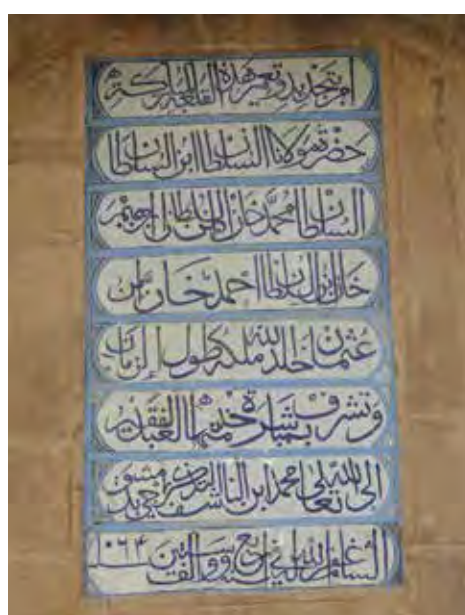 أمر بتجديد وتعمير هذه القلعة المباركة
حضرة مولانا السلطان ابن السلطان
السلطان محمد خان ابن السلطان ابراهيم
خان ابن السلطان احمد خان بن
عثمان خلد الله ملكه طول الزمان
وتشرف بمباشرة خدمتها العبد الفقير
الى الله تعالى محمد ابن الناشف دمشق
غفر الله له في اربع وستين والف سنة ١٠٦٤